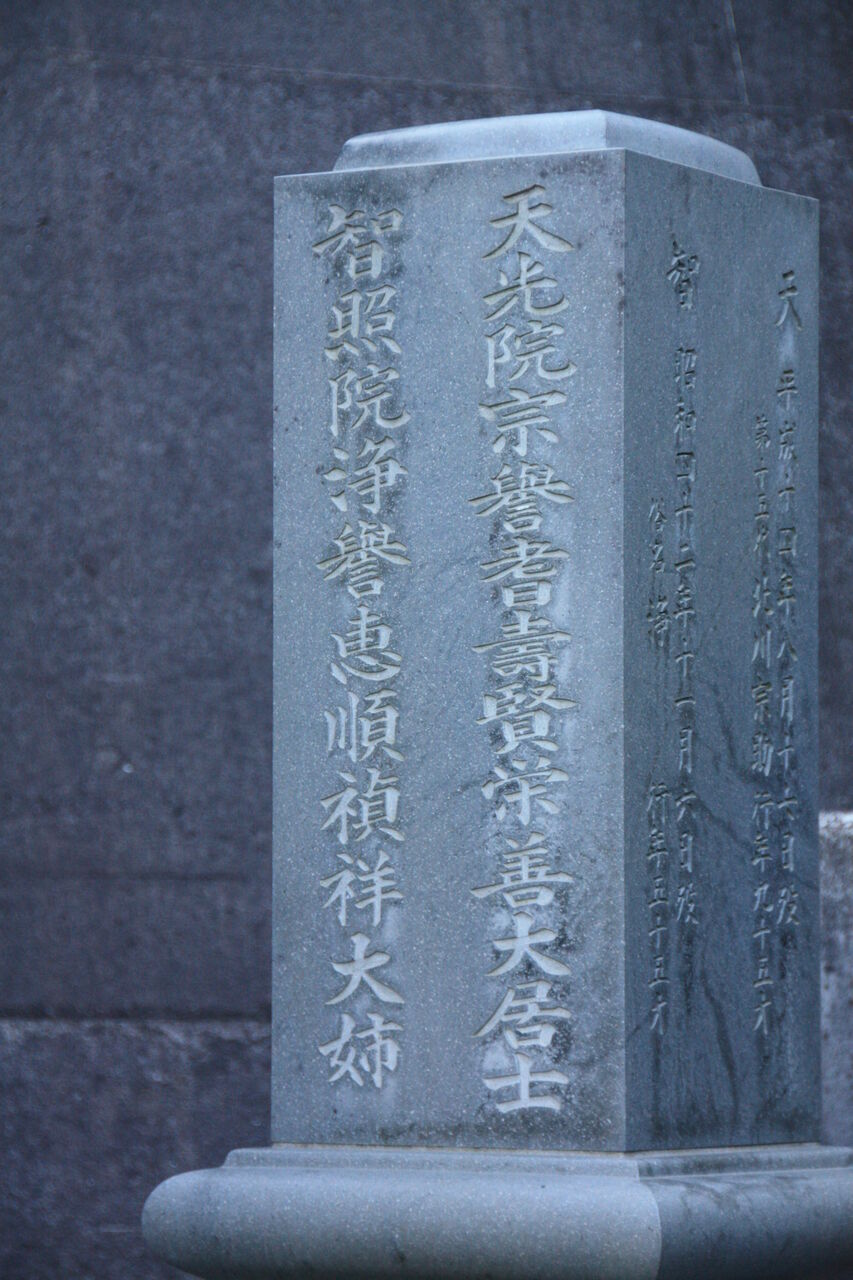 天光院宗譽耆壽賢栄善大居士
智照院浄譽恵順禎祥大姉
天 平成十四年八月十六日歿
第十五代 北川宗助 行年九十五才
智 昭和四十二年十一月六日歿
俗名 行年五十五才